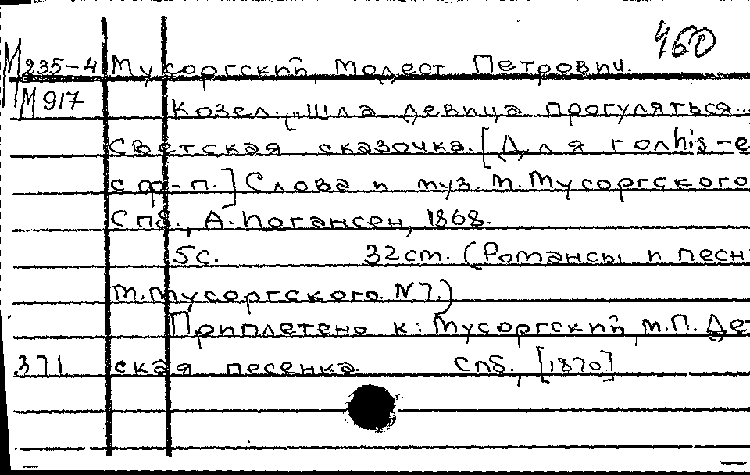 460
М235-4 Мусоргский, Модест Петрович.
М917 Козел. "Шла девица прогуляться..
Светская сказочка. [Для гол
с ф-п.] Слова и муз. М. Мусоргского
Спб., А. Иогансен, 1868.
5с. 32см. (Романсы и песн
М. Мусоргского. N7.)
Приплетено к: Мусоргский, М.П. Дет
371 ская песенка. Спб., [1870]